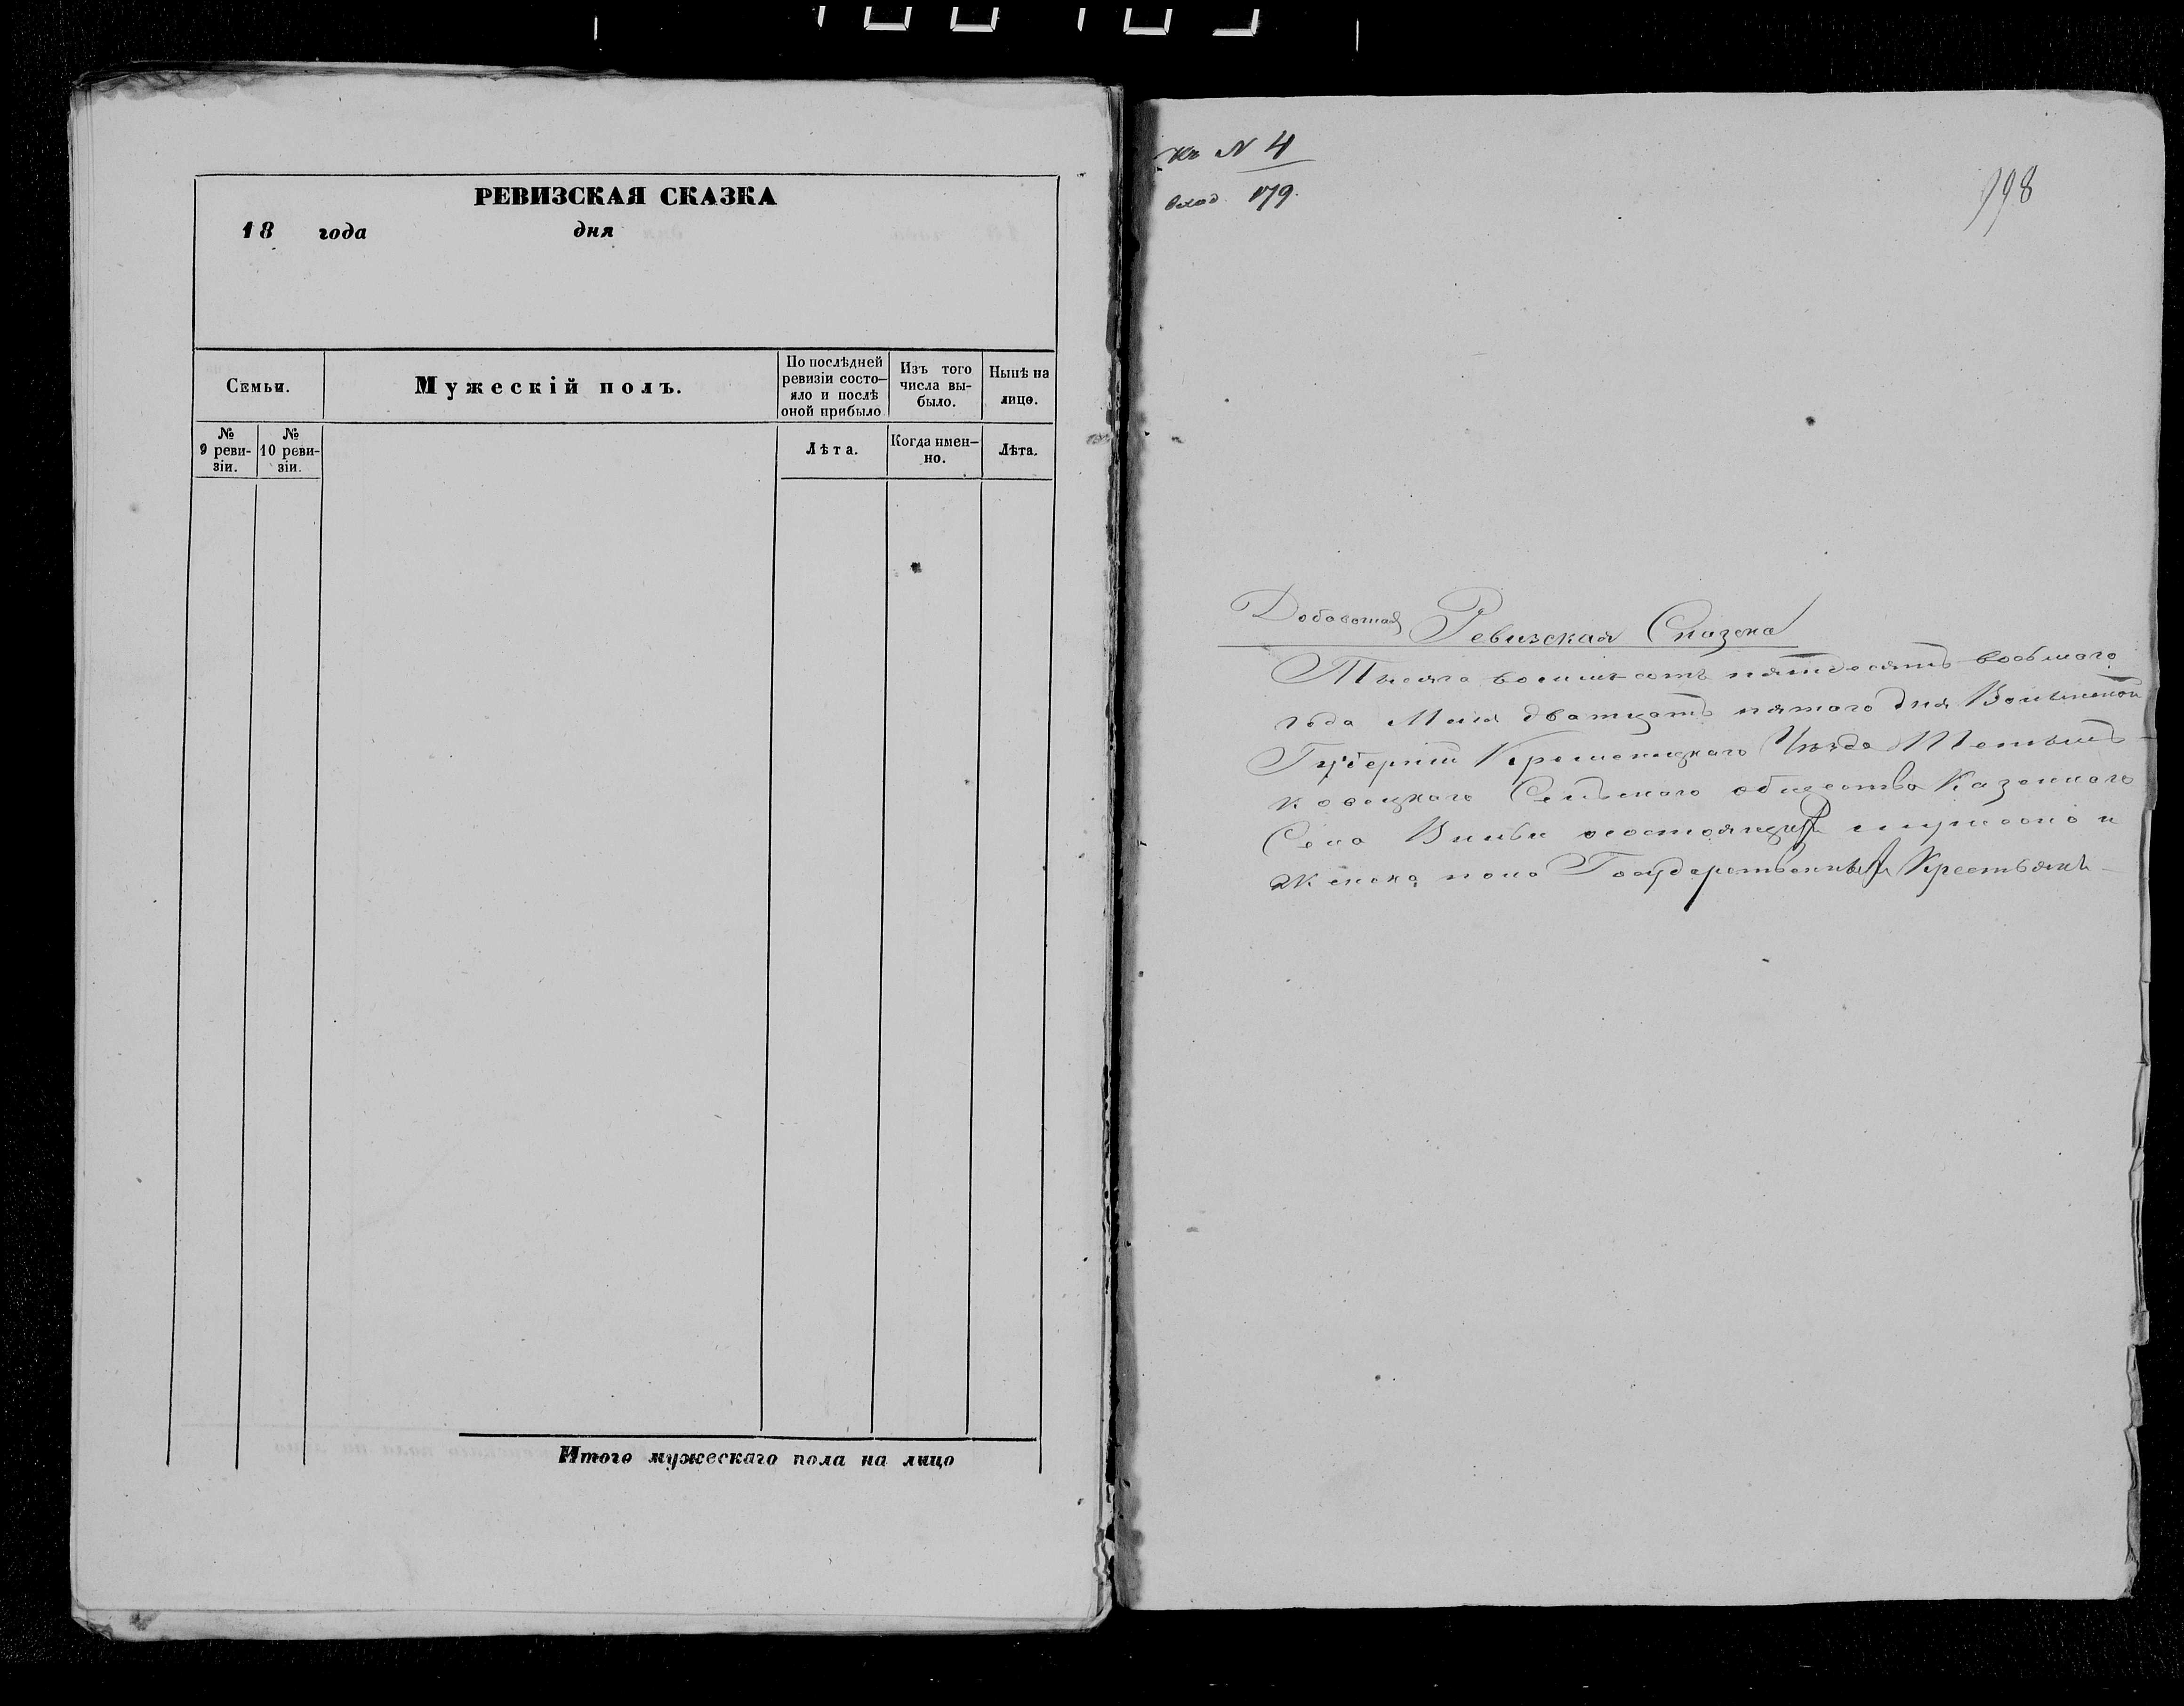 РЕВИЗСКАЯ СКАЗКА
18 года дня
Семьи.
Мужескій полъ.
По послѣдней
ревизіи состо-
яло и послѣ
оной прибыло
Изъ того
числа вы-
было.
Нынѣ на
лицо.
№
9 реви-
зіи.
№
10 реви-
зіи.
Лѣта.
Когда имен-
но.
Лѣта.
Итого мужескаго пола на лицо
Къ N 4
вход 179.
998
Ревизская Сказка
Тысяча восимьсотъ пятдесятъ восьмаго
года Мая дватцатъ пятого дня Волынской
Губерніи Кременецкаго Уѣзда
Сельского общества Казенного
Села состоящихъ мужеска и
женска пола Государственныхъ Крестьянъ